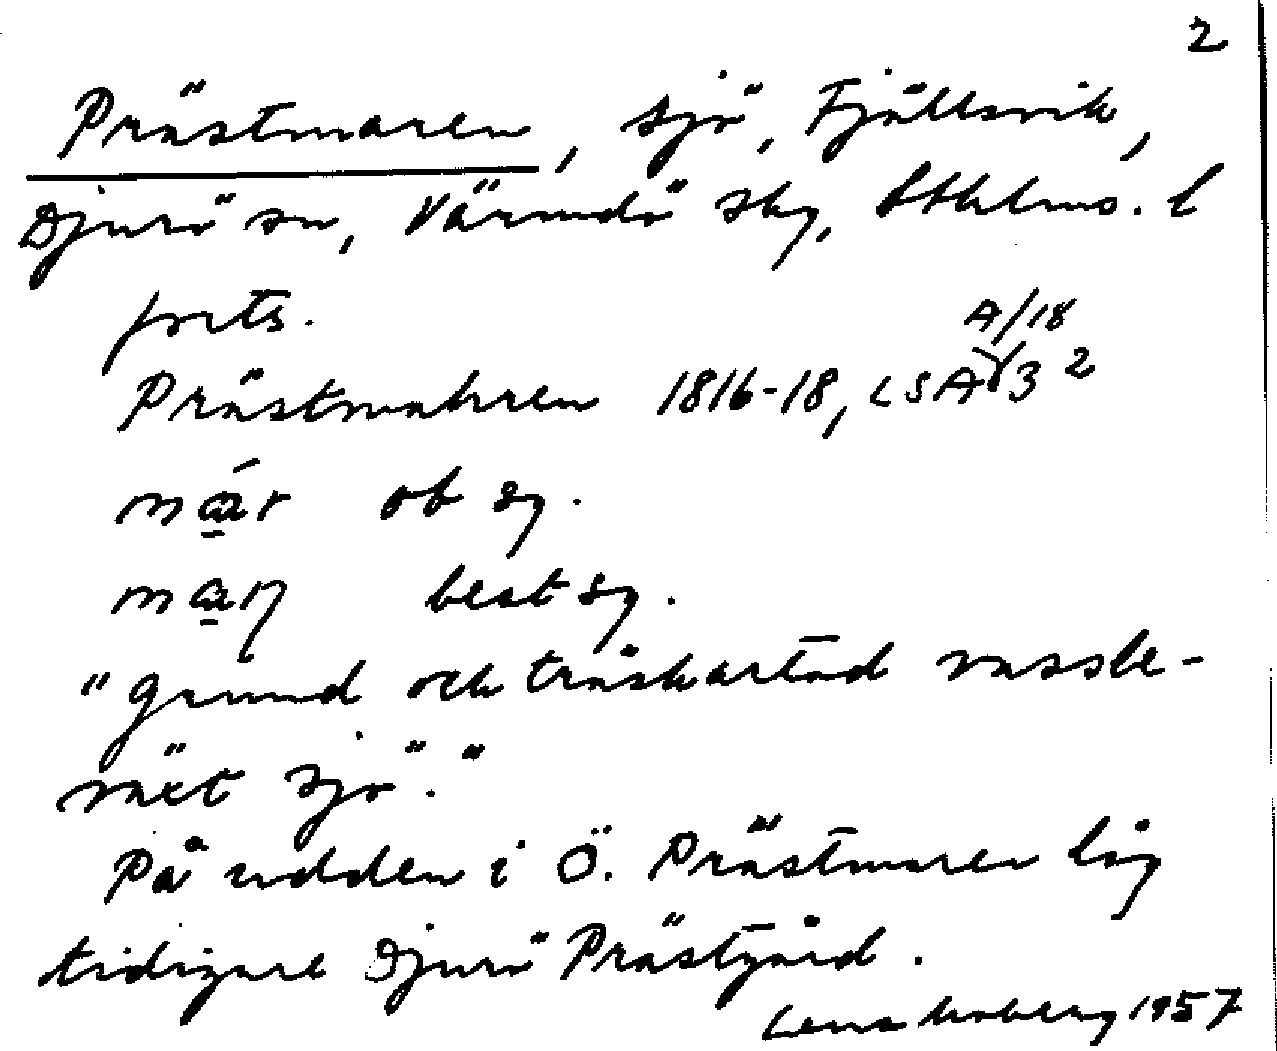 2
Prästmaren, sjö, Fjällsvik,
Djurö sn, Värmdö skg, Sthlms. l
forts.
A/18
Prästmahren 1816-18, LSA 3 2
ob sg.
best sg.
"grund och träskartad vassbe-
växt sjö."
På udden i Ö. Prästmaren låg
tidigare Djurö Prästgård.
Lena Moberg 1957